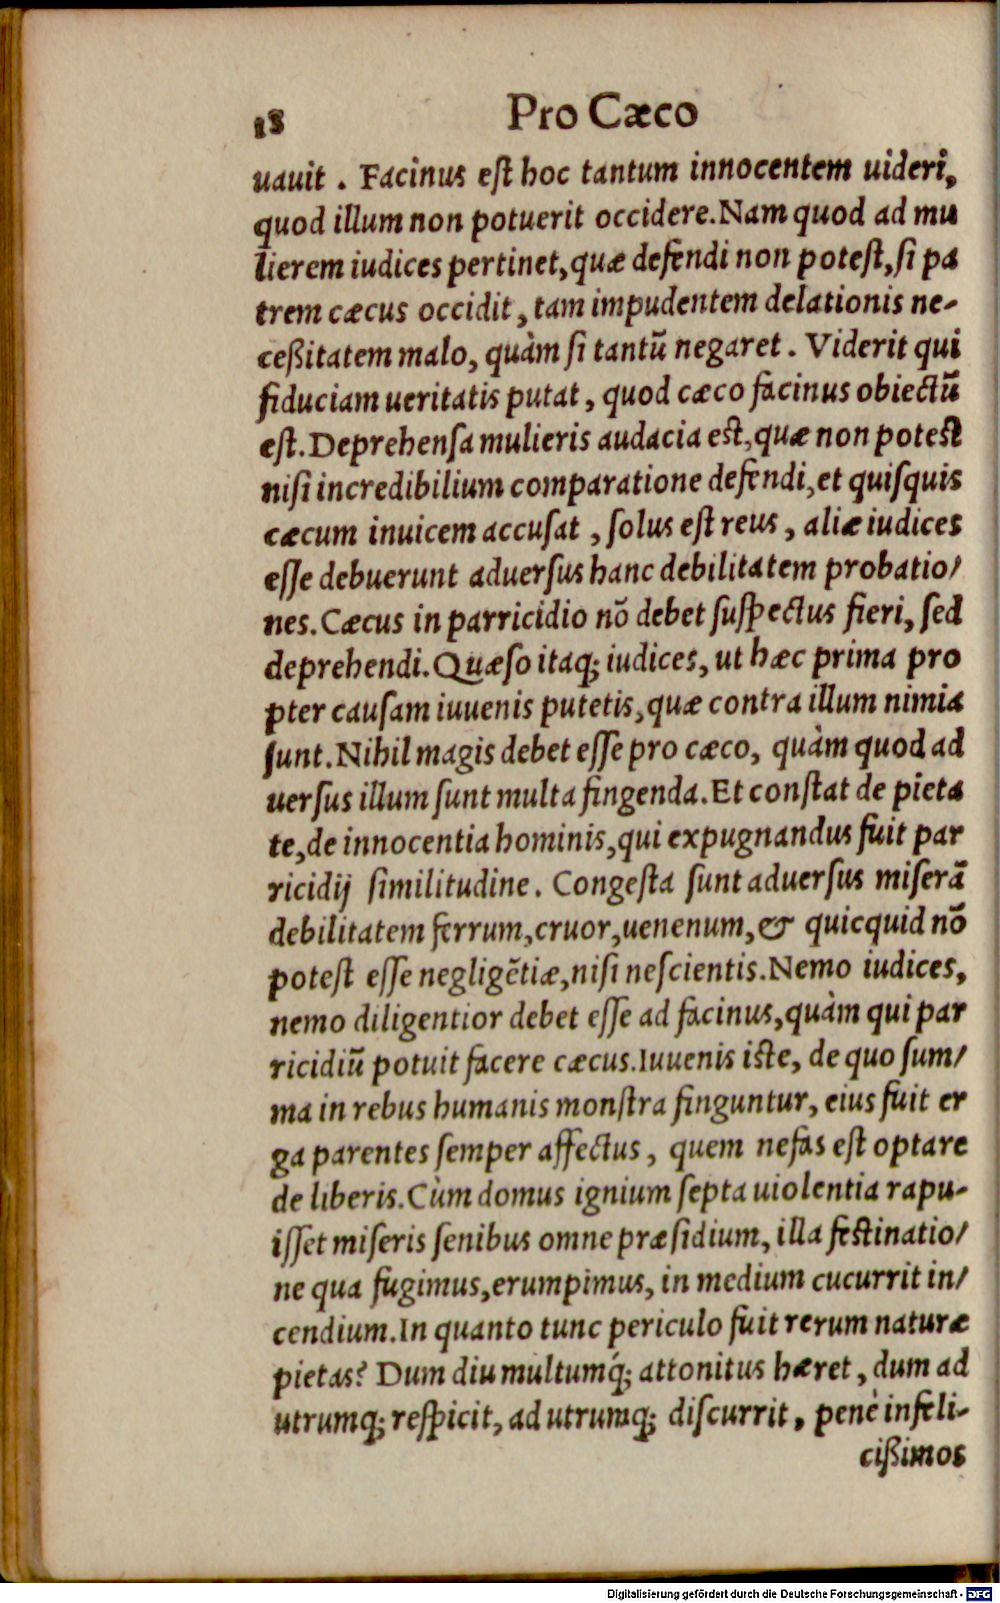 18 Pro Cæco
uauit . Facinus eſt hoc tantum innocentem uideri,
quod illum non potuerit occidere. Nam quod ad mu
lierem iudices pertinet, quæ defendi non poteſt, ſi pa
trem cæcus occidit, tam impudentem delationis ne-
ceßitatem malo, quàm ſi tantũ negaret . Viderit qui
fiduciam ueritatis putat, quod cæco facinus obiectũ
eſt. Deprehenſa mulieris audacia eſt, quæ non poteſt
niſi incredibilium comparatione defendi, et quiſquis
cæcum inuicem accuſat, ſolus eſt reus, aliæ iudices
eſſe debuerunt aduerſus hanc debilitatem probatio/
nes. Cæcus in parricidio nõ debet ſuſpectus fieri, ſed
deprehendi. Quæſo itaq; iudices, ut hæc prima pro
pter cauſam iuuenis putetis, quæ contra illum nimia
ſunt. Nihil magis debet eſſe pro cæco, quàm quod ad
uerſus illum ſunt multa fingenda. Et conſtat de pieta
te, de innocentia hominis, qui expugnandus fuit par
ricidij ſimilitudine. Congeſta ſunt aduerſus miſerã
debilitatem ferrum, cruor, uenenum, & quicquid nõ
poteſt eſſe negligẽtiæ, niſi neſcientis. Nemo iudices,
nemo diligentior debet eſſe ad facinus, quàm qui par
ricidiũ potuit facere cæcus. Iuuenis iſte, de quo ſum/
ma in rebus humanis monſtra finguntur, eius fuit er
ga parentes ſemper affectus, quem nefas eſt optare
de liberis. Cùm domus ignium ſepta uiolentia rapu-
iſſet miſeris ſenibus omne præſidium, illa feſtinatio/
ne qua fugimus, erumpimus, in medium cucurrit in/
cendium. In quanto tunc periculo fuit rerum naturæ
pietas? Dum diu multumq́; attonitus hæret, dum ad
utrumq; reſpicit, ad utrumq; diſcurrit, penè infeli-
cißimos
Digitalisierung gefördert durch die Deutsche Forschungsgemeinschaft - DFG